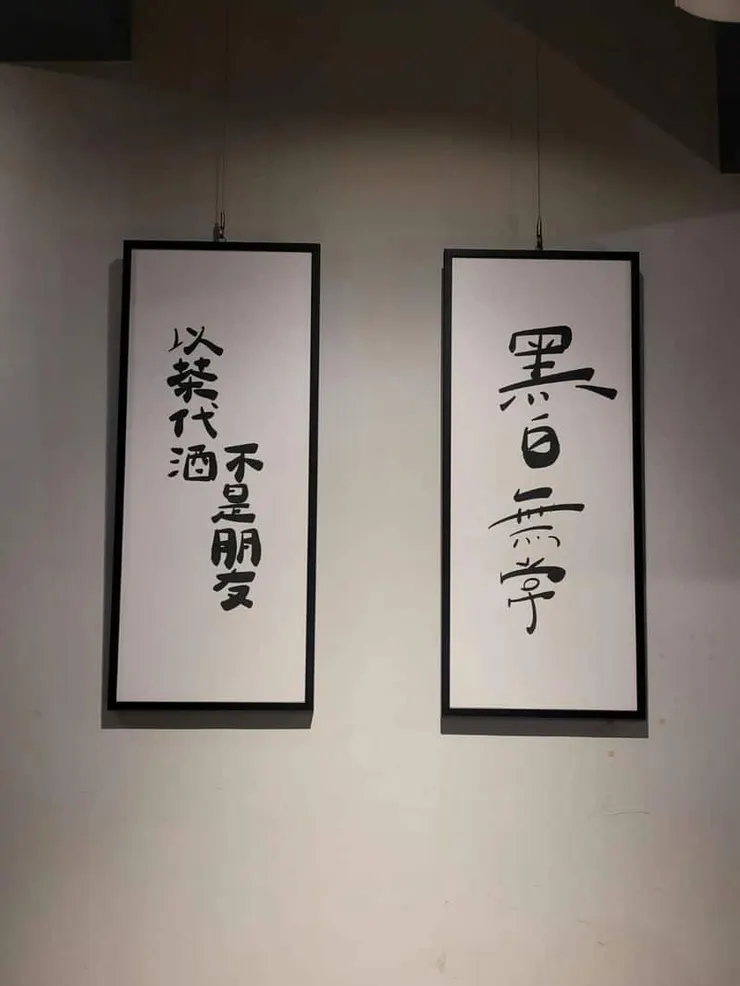 以茶代酒
不是朋友
黑白無常